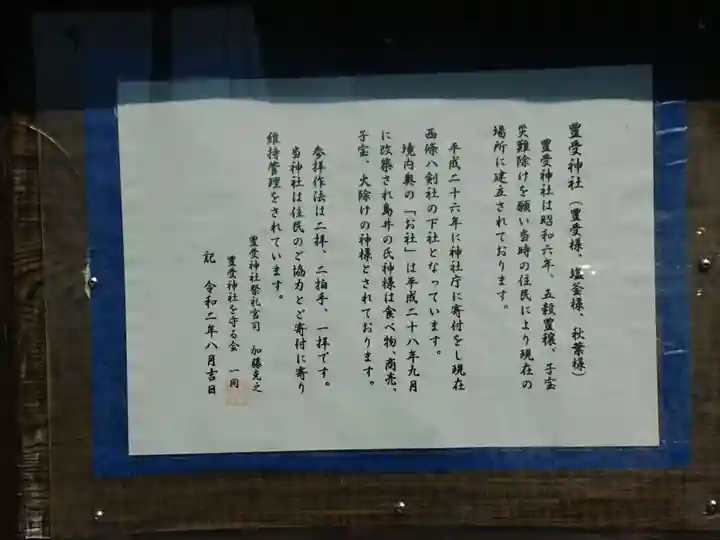 豊受神社（豊受様、塩釜様、秋葉様）
豊受神社は昭和六年、五穀豊穣、子宝
災難除けを願い当時の住民により現在の
場所に建立されております。
平成二十六年に神社庁に寄付をし現在
西條八剣社の下社となっています。
境内奥の「お社」は平成二十八年九月
に改築され鳥井の氏神様は食べ物、商売、
子宝、火除けの神様とされております。
参拝作法は二拝、二拍手、一拝です。
当神社は住民のご協力とご寄付に寄り
維持管理をされています。
豊受神社祭礼宮司　加藤克之
豊受神社を守る会　一同
記　令和二年八月吉日